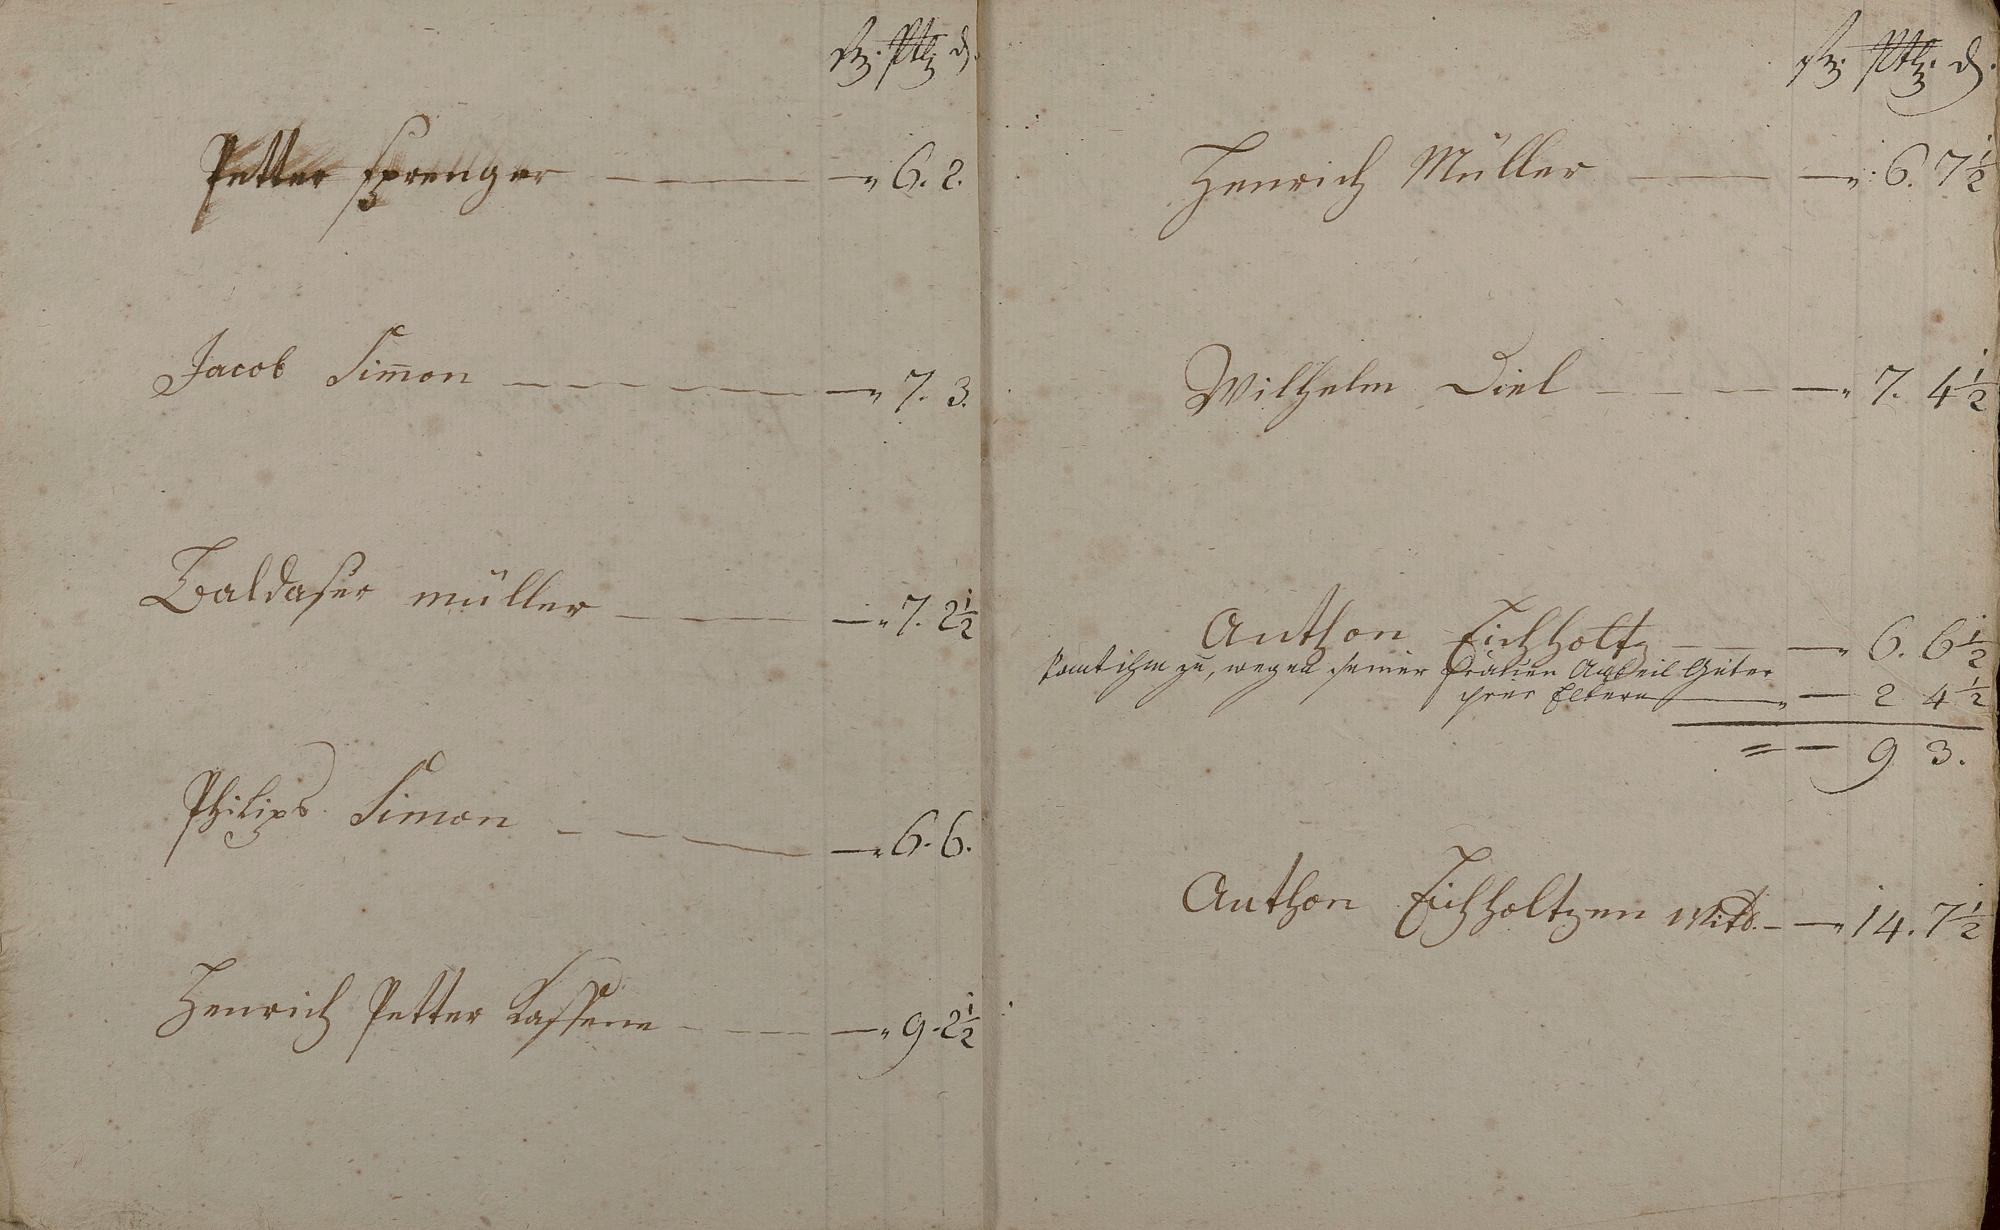 Petter Sprenger — — „ 6. 2.
Jacob Sim̅on — — „ 7. 3.
Baldaser müller — — „ 7. 2½
Philips Simon — — „ 6. 6.
Henrich Petter — — „ 9. 2½
Henrich Müller — — „ 6. 7½
Wilhelm Diel — — „ 7. 4½
Anthon Eichholtz — — „ 6. 6½
komt ihm zu, wegen seiner Antheil Güter
Eltern — „ — 2 4½
= — 9 3.
Anthon Eichholtzen Witb. — — „ 14. 7½